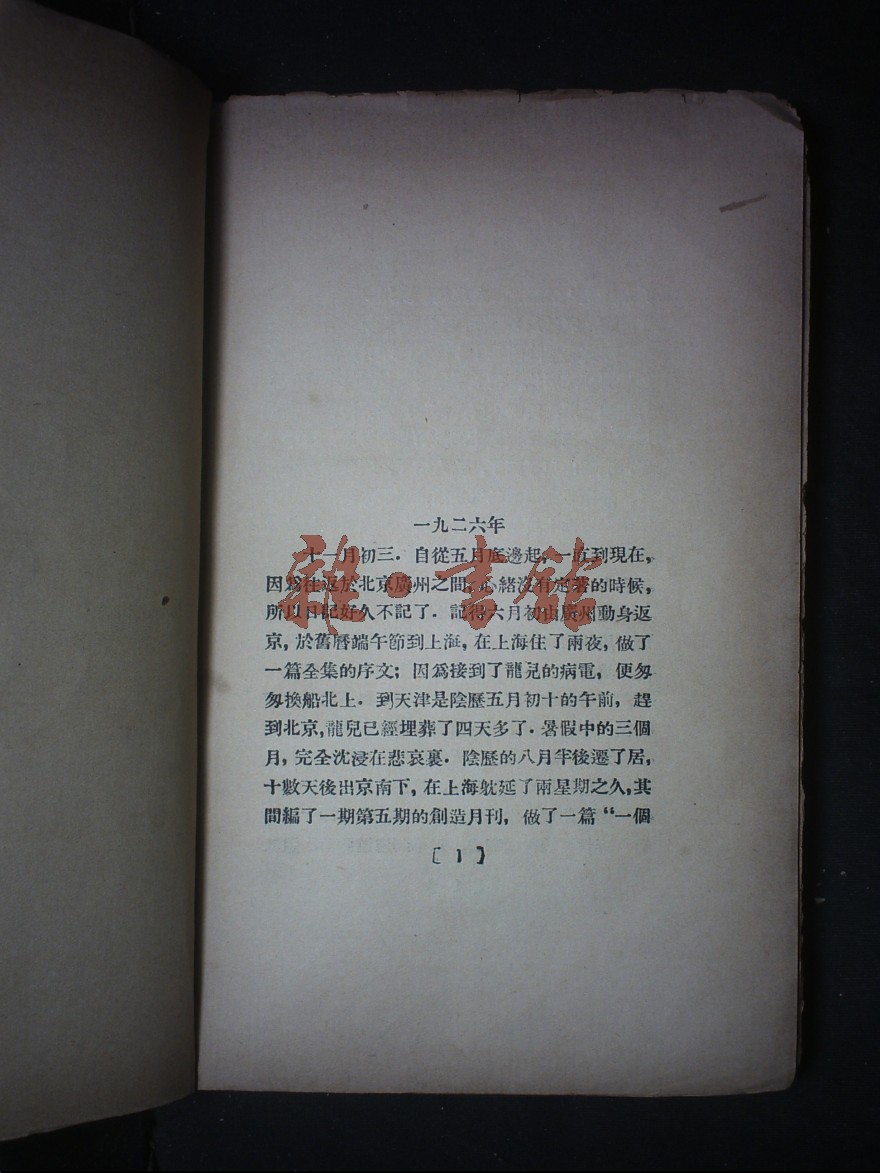 一九二六年
十一月初三．自從五月底邊起，一直到現在，
因爲往返於北京廣州之間，心緒沒有定著的時候，
所以日記好久不記了．記得六月初由廣州動身返
京，於舊曆端午節到上海，在上海住了兩夜，做了
一篇全集的序文；因爲接到了龍兒的病電，便匆
匆換船北上．到天津是陰歷五月初十的午前，趕
到北京，龍兒已經埋葬了四天多了．暑假中的三個
月，完全沈浸在悲哀裏．陰歷的八月半後遷了居，
十數天後出京南下，在上海躭延了兩星期之久，其
間編了一期第五期的創造月刊，做了一篇“一個
〔1〕
雜·書館